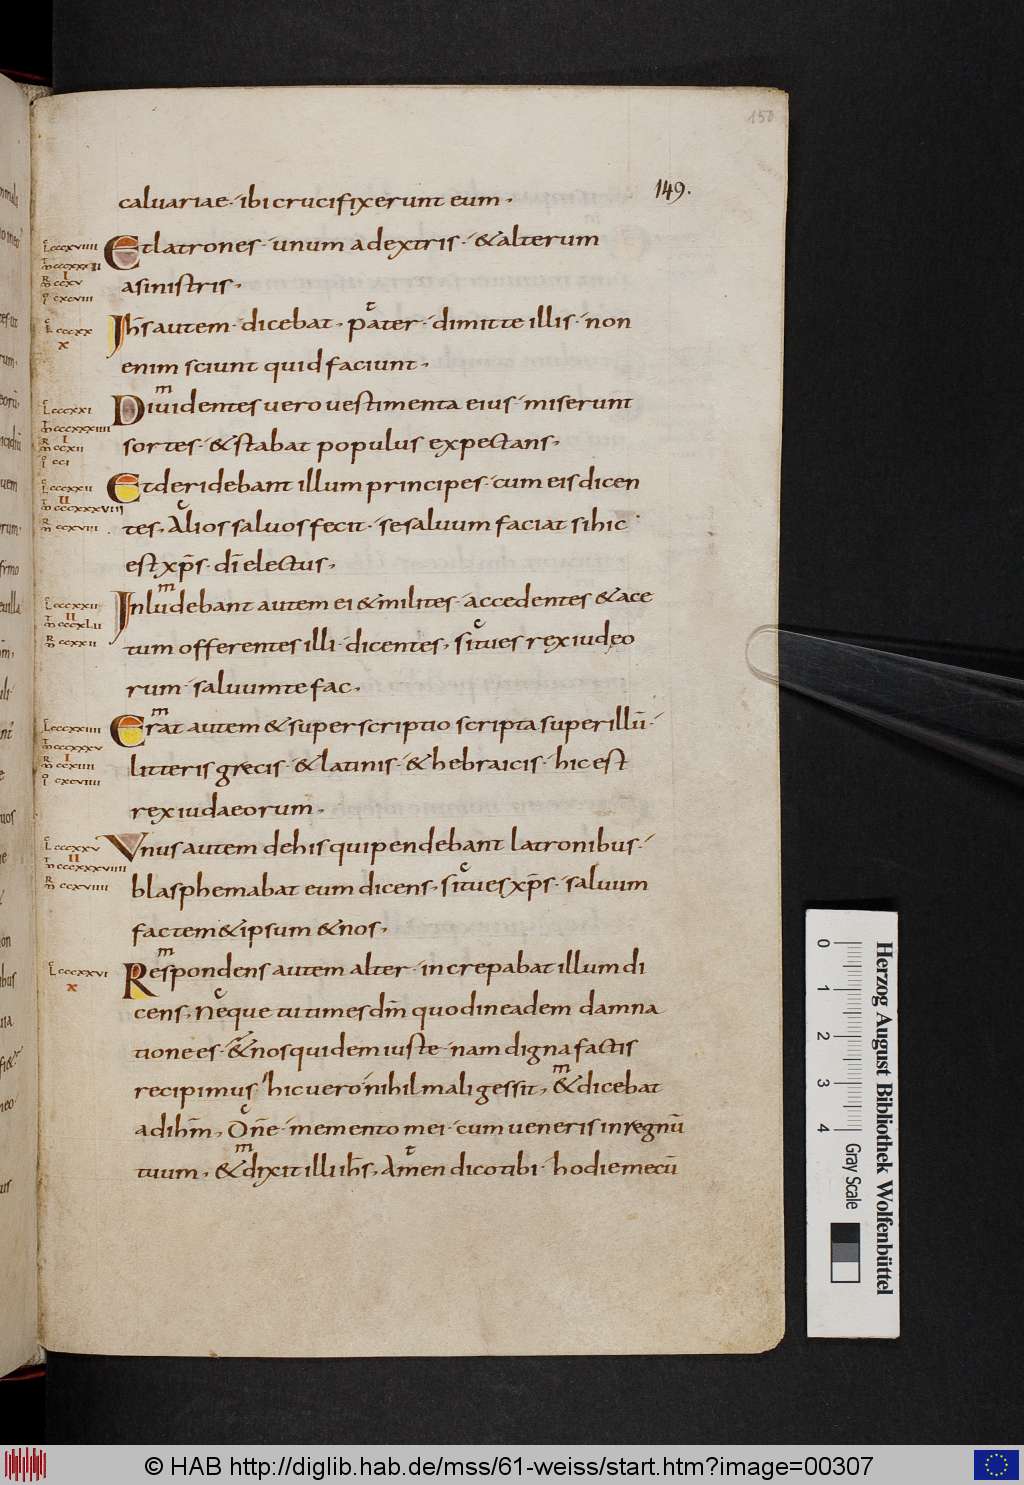 150
149.
caluariae · ibi crucifixerunt eum ·
Et latrones · unum adextris · & alterum
asinistris ·
Ihs̄ autem · dicebat · pater · dimitte illis · non
enim sciunt quid faciunt ·
Diuidentes uero uestimenta eius · miserunt
sortes · & stabat populus expectans ·
Et deridebant illum principes · cum eis dicen
tes · Alios saluos fecit · se saluum faciat si hic
est xp̄s · dī electus ·
Inludebant autem ei & milites · accedentes & ace
tum offerentes illi · dicentes · si tu es rex iudeo
rum · saluum te fac ·
Erat autem & superscriptio scripta super illū ·
litteris grecis · & latinis · & hebraicis · hic est
rex iudaeorum ·
Vnus autem de his qui pendebant latronibus ·
blasphemabat eum dicens · si tu es xp̄s · saluum
fac tem&ipsum & nos ·
Respondens autem alter · increpabat illum di
cens · Neque tu times dm̄ quod in eadem damna
tione es · & nos quidem iuste · nam digna factis
recipimus · hic uero nihil mali gessit · & dicebat
ad ihm̄ · Dn̄e · memento mei · cum ueneris in regnū
tuum · & dixit illi ihs̄ · Amen dico tibi · hodie mecū
0 1 2 3 4
Gray Scale
Herzog August Bibliothek Wolfenbüttel
© HAB http://diglib.hab.de/mss/61-weiss/start.htm?image=00307